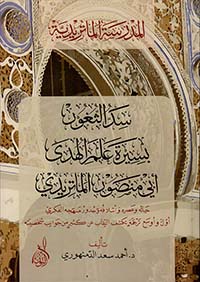 المدرسة الماتريدية
سد الثغور
بسيرة علم الهدى
أبي منصور الماتريدي
حياته وعصره وتلامذته ودور منهجه الفكري
أول وأوسع ترجمة تكشف النقاب عن كثير من جوانب شخصيته
تأليف
د. أحمد سعد الدمنهوري